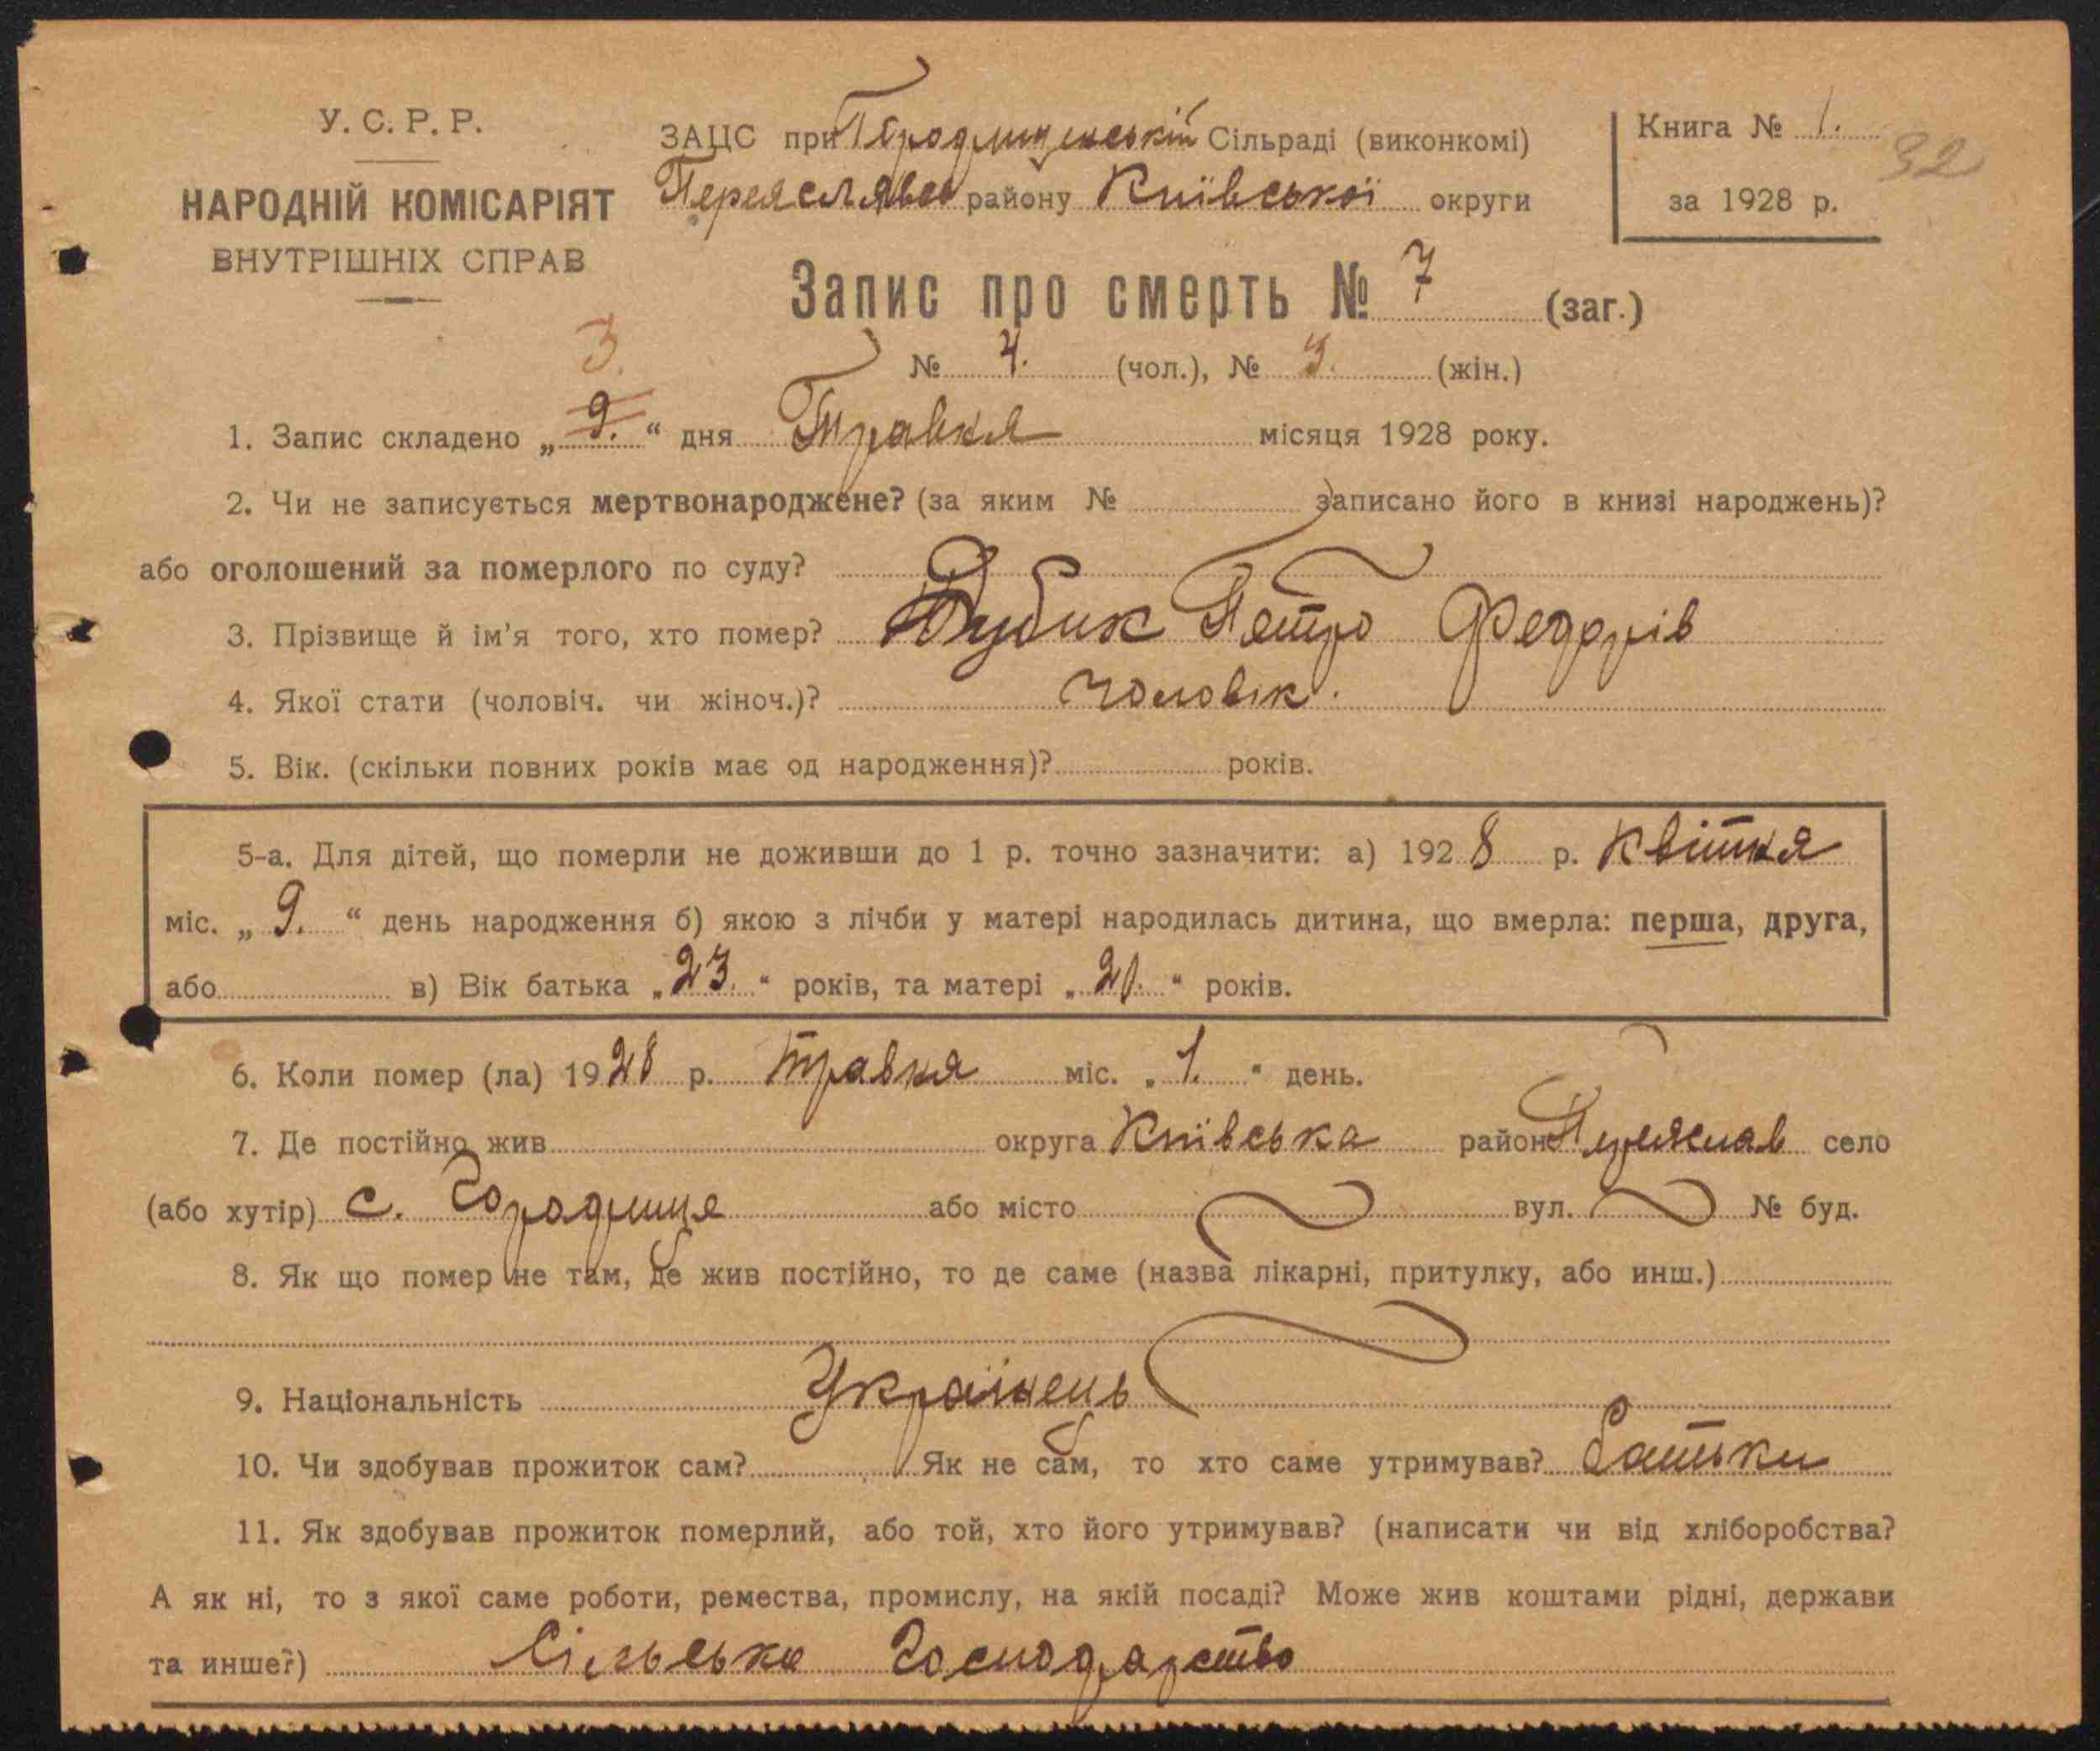 У. С. Р. Р.
НАРОДНІЙ КОМІСАРІЯТ
ВНУТРІШНІХ СПРАВ
ЗАЦС при Городищенській Сільраді (виконкомі)
Переяславсь району Київської округи
Книга № 1.
32
за 1928 р.
Запис про смерть № 7 (заг.)
№ 4. (чол.), № 3. (жін.)
3.
1. Запис складено „ 9. “ дня Травня місяця 1928 року.
2. Чи не записується мертвонароджене? (за яким № записано його в книзі народжень)?
або оголошений за померлого по суду?
3. Прізвище й ім’я того, хто помер? Дубик Петро Федорів
4. Якої стати (чоловіч. чи жіноч.)? чоловік.
5. Вік. (скільки повних років має од народження)? років.
5-а. Для дітей, що померли не доживши до 1 р. точно зазначити: а) 1928 р. Квітня
міс. „ 9. “ день народження б) якою з лічби у матері народилась дитина, що вмерла: перша, друга,
або в) Вік батька „ 23. “ років, та матері „ 21. “ років.
6. Коли помер (ла) 1928 р. травня міс. „ 1. “ день.
7. Де постійно жив округа Київська район Переяслав село
(або хутір) с. Городище або місто вул. № буд.
8. Як що помер не там, де жив постійно, то де саме (назва лікарні, притулку, або инш.)
9. Національність Українець
10. Чи здобував прожиток сам? Як не сам, то хто саме утримував? батьки
11. Як здобував прожиток померлий, або той, хто його утримував? (написати чи від хліборобства?
А як ні, то з якої саме роботи, ремества, промислу, на якій посаді? Може жив коштами рідні, держави
та инше?) Сільське Господарство